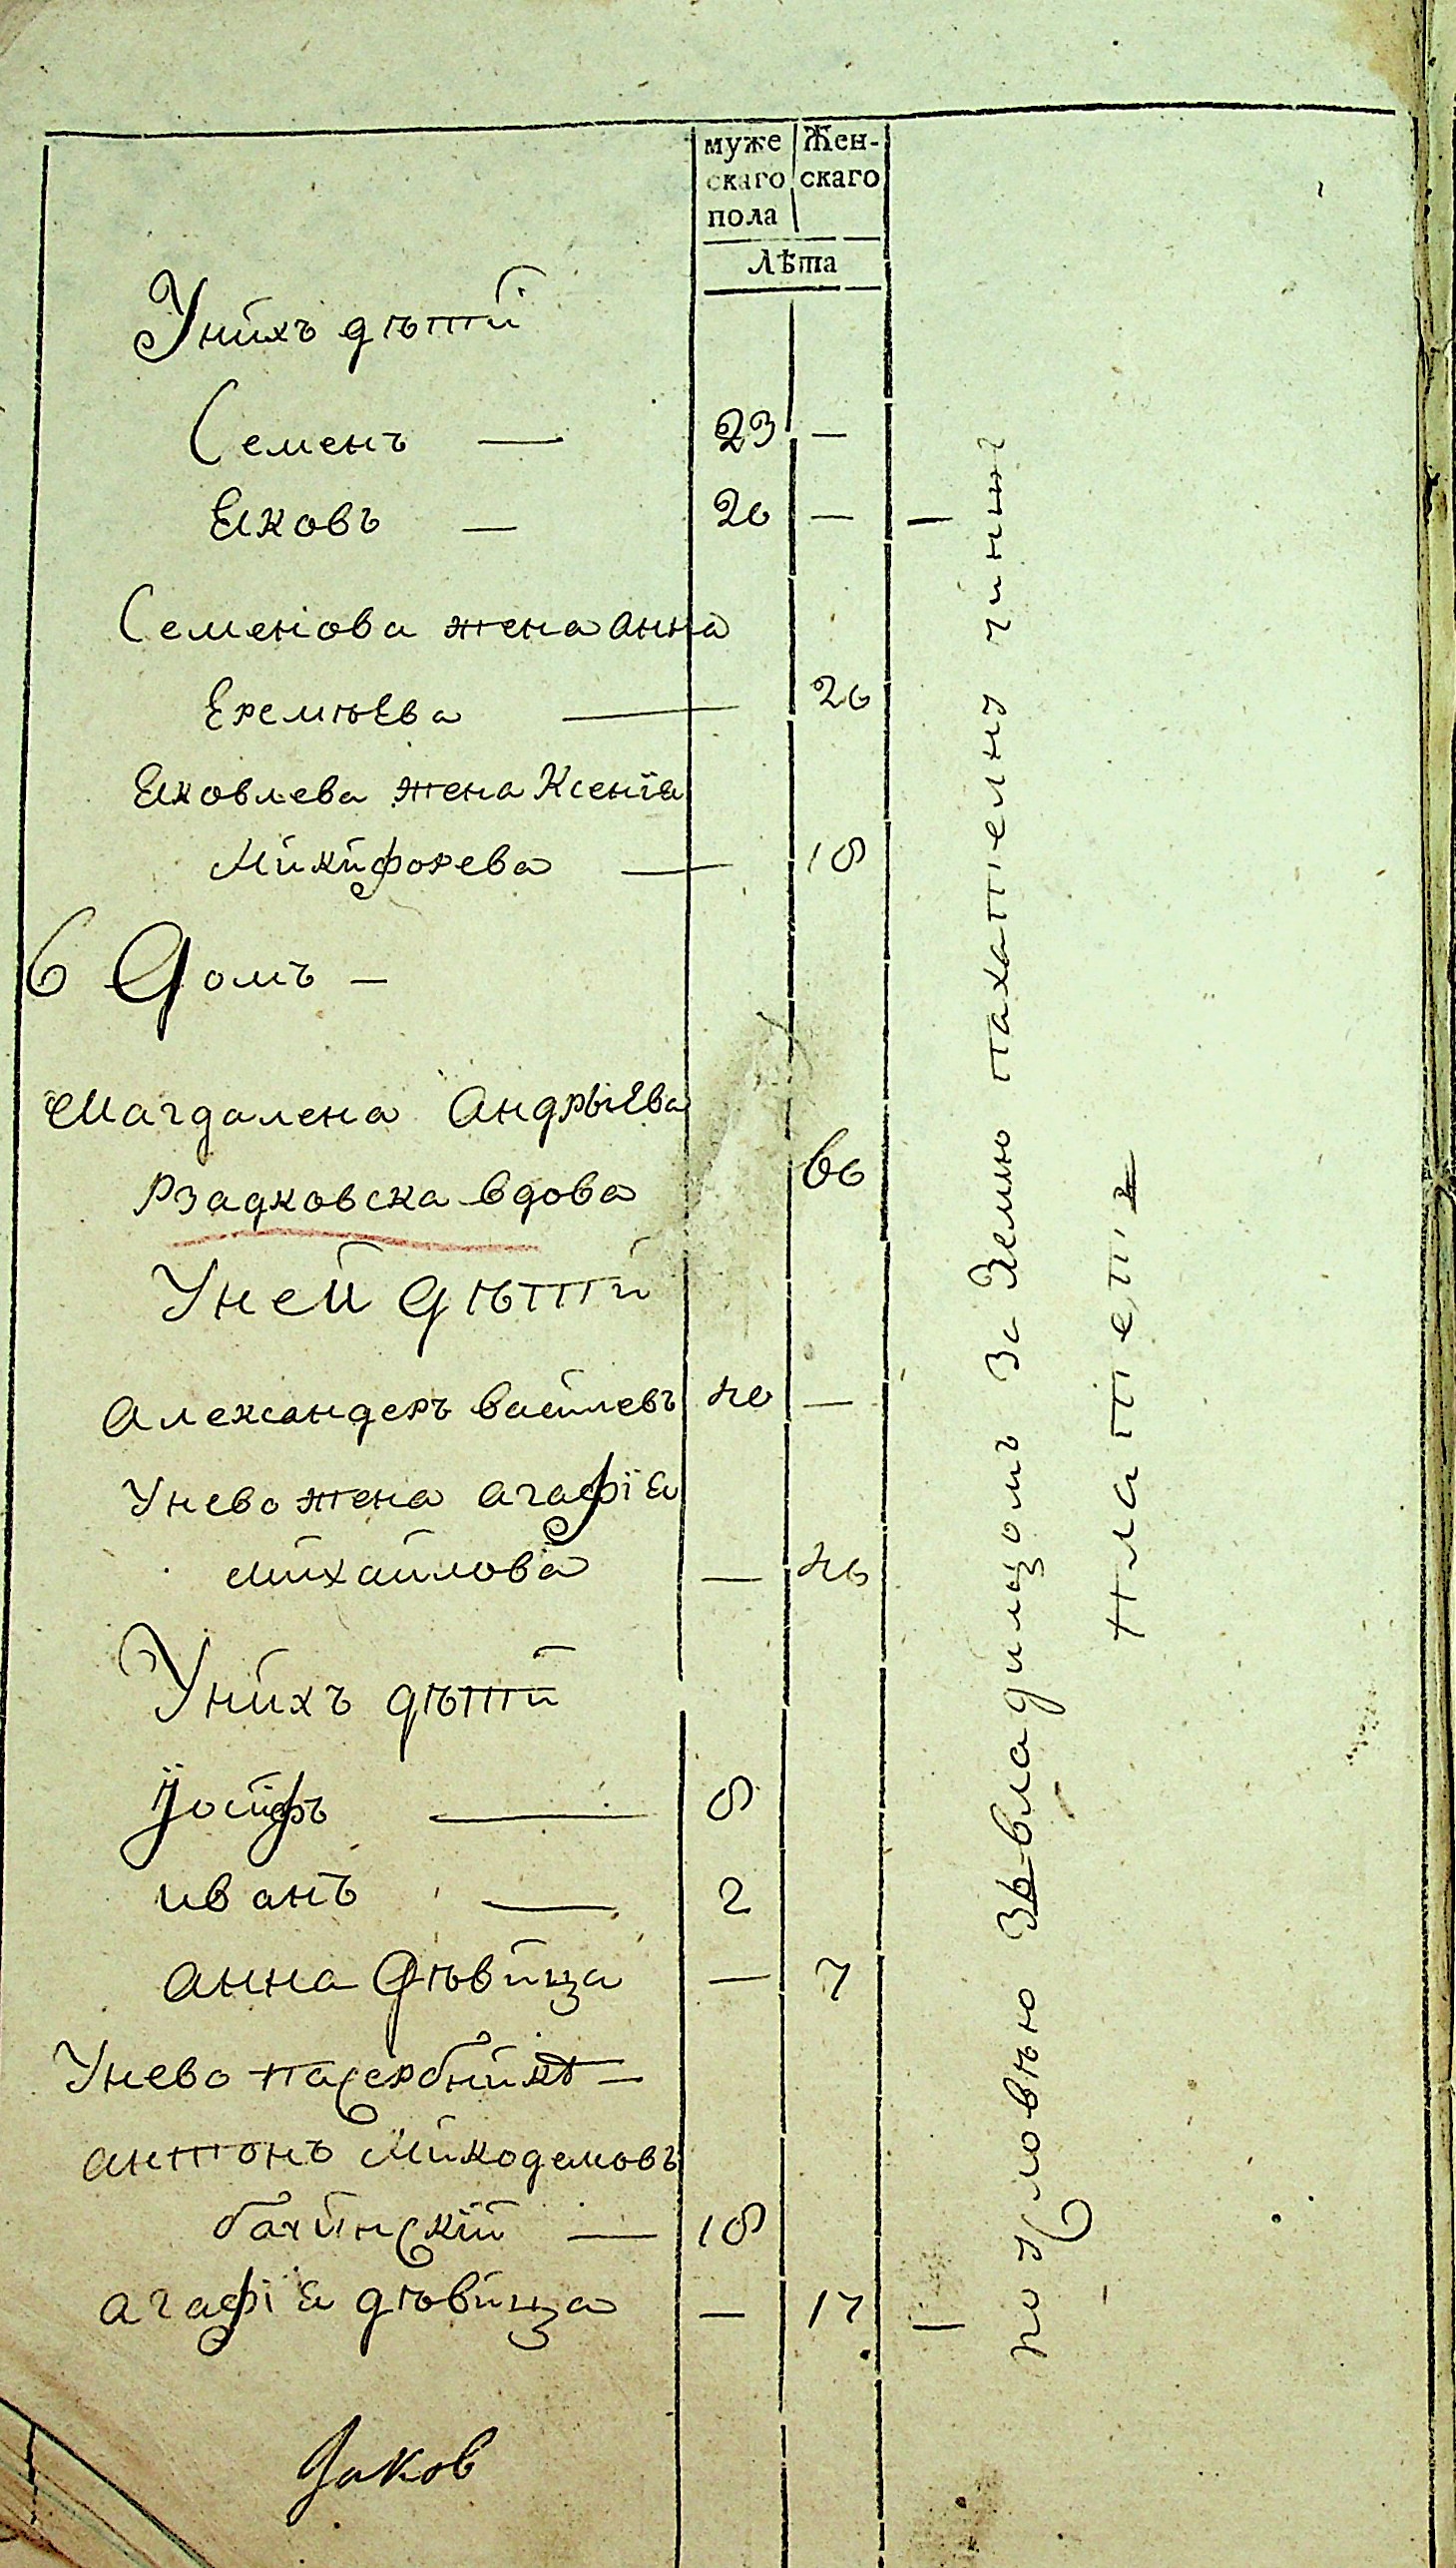 муже Жен-
скаго скаго
пола
Лѣта
Унихъ дѣти
Семенъ — 23 —
Яковъ — 20 —
Семенова жена анна
Еремѣева — 26
Яковлева жена Ксенїя
Микифорева — 18
6 Домъ —
Магдалена Андрыева
Рзадковска вдова 60
Уней дѣти
Александеръ василевъ 40 —
Унево жена агафїя
михайлова — 46
Унихъ дѣти
Їосифъ — 8
иванъ — 2
анна дѣвица — 7
Унево пасербики —
антонъ Микодемовъ
бачинскїй — 18
агафїя дѣвица — 17
Яков
поусловѣю зъвладилцомъ за Землю пахателну чинил
платетъ